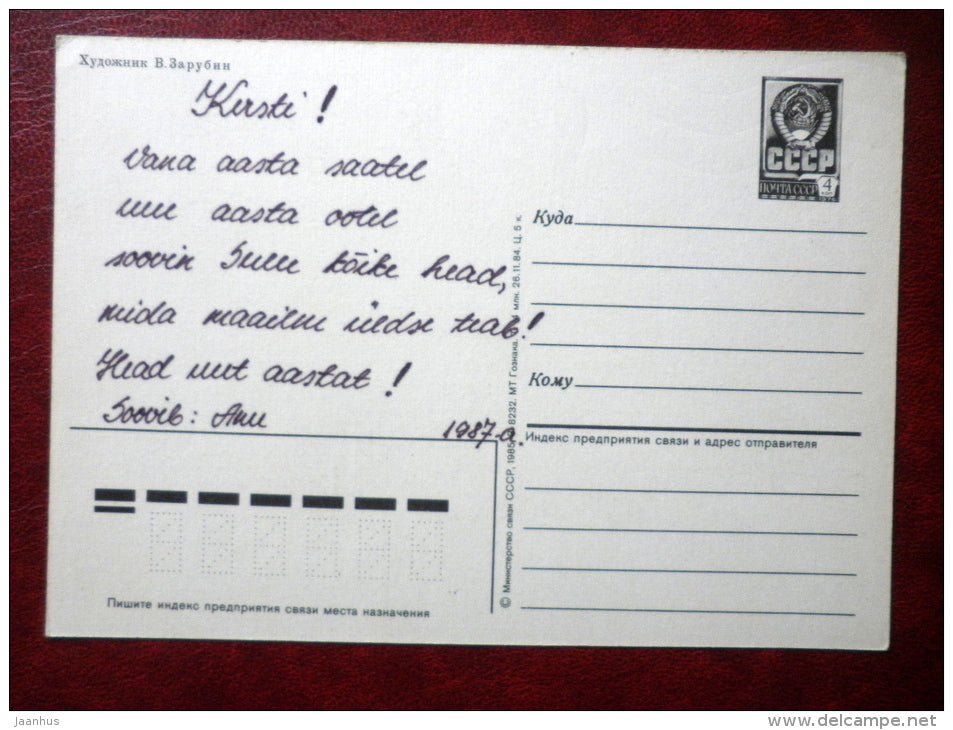 Художник В. Зарубин
Kersti!
Vana aasta saatel
uue aasta ootel
soovin Sulle kõike head,
mida maailm üldse teab!
Head uut aastat!
Soovib: Anu
1987.a.
СССР
ПОЧТА СССР 4
Куда
Кому
Индекс предприятия связи и адрес отправителя
© Министерство связи СССР, 1985. 8232. МТ Гознака. млн. 26.11.84. Ц. 5 к.
Пишите индекс предприятия связи места назначения
jaanhus
www.delcampe.net